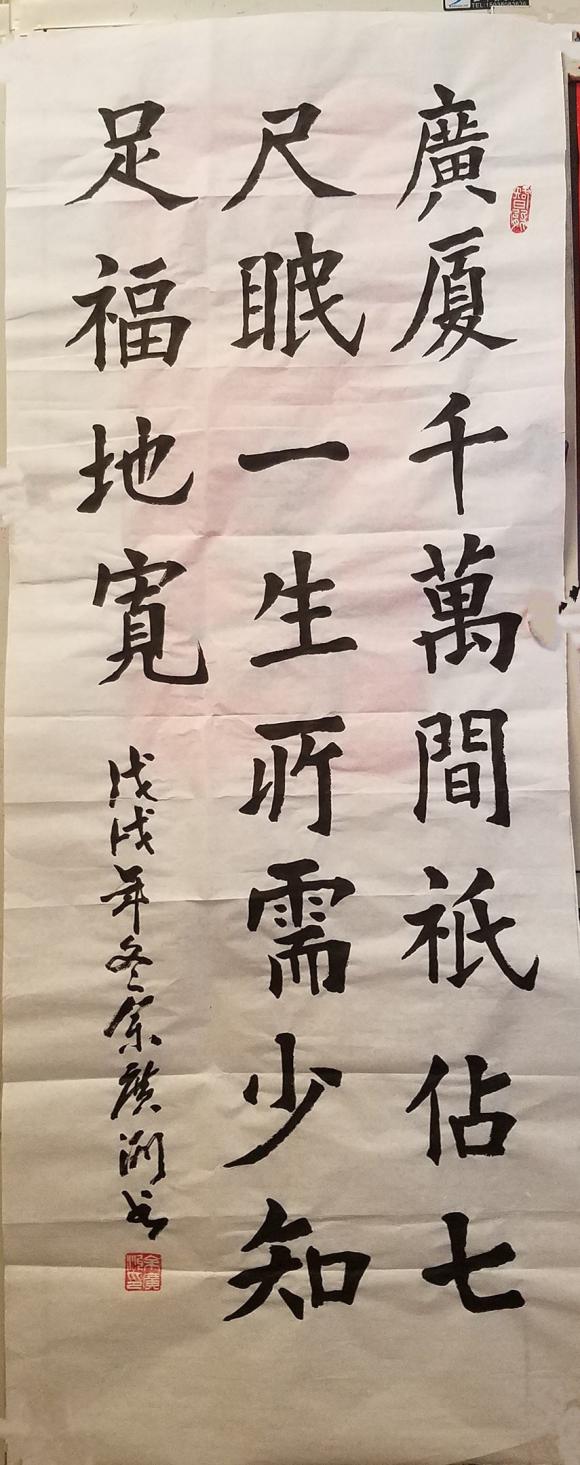 廣厦千萬間祇佔七
尺眠一生所需少知
足福地寬
戊戌年冬余廣洲书